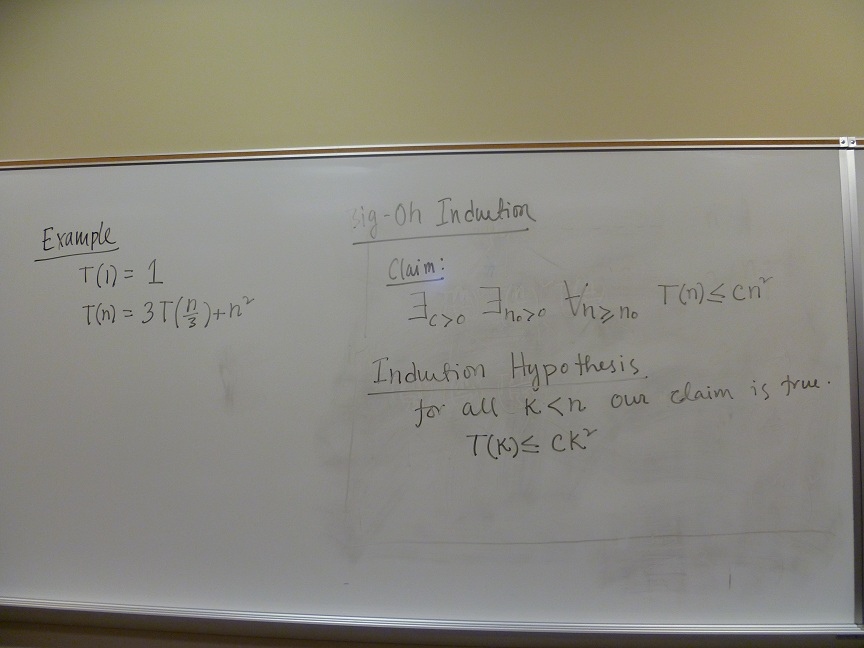 Example
T(1) = 1
T(n) = 3T(n/3)+n²
Big-Oh Induction
Claim:
∃c>0 ∃n₀>0 ∀n≥n₀ T(n) ≤ cn²
Induction Hypothesis
for all K<n our claim is true.
T(K) ≤ CK²